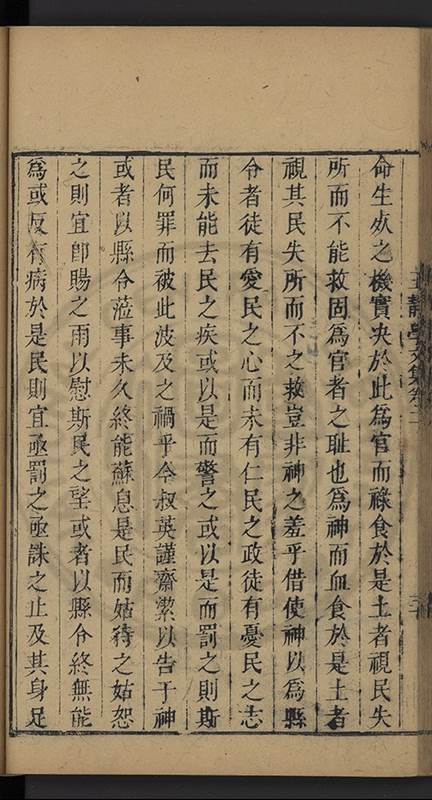 王靜學文集卷二
命生死之機實决於此為官而祿食於是土者視民失
所而不能救固為官者之耻也為神而血食於是土者
視其民失所而不之救豈非神之羞乎借使神以為縣
令者徒有愛民之心而未有仁民之政徒有憂民之志
而未能去民之疾或以是而警之或以是而罰之則斯
民何罪而被此波及之禍乎令叔英謹齋潔以告于神
或者以縣令蒞事未久終能蘇息是民而姑待之姑恕
之則宜卽賜之雨以慰斯民之望或者以縣令終無能
為或反有病於是民則宜亟罰之亟誅之止及其身足